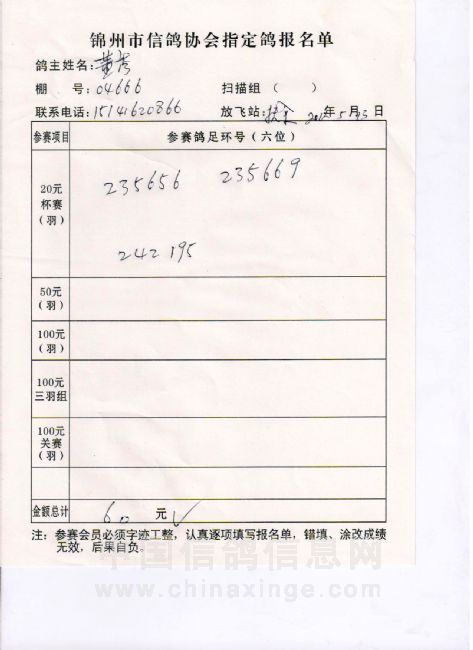 锦州市信鸽协会指定鸽报名单
鸽主姓名：董
棚 号：04666 扫描组（ ）
联系电话：15141620866 放飞站： 年5月 日
参赛项目 参赛鸽足环号（六位）
20元
杯赛
（羽）
235656 235669
242195
50元
（羽）
100元
（羽）
100元
三羽组
100元
关赛
（羽）
金额总计 60 元 √
注：参赛会员必须字迹工整，认真逐项填写报名单，错填、涂改成绩
无效，后果自负。
中国信鸽信息网
www.chinaxinge.com